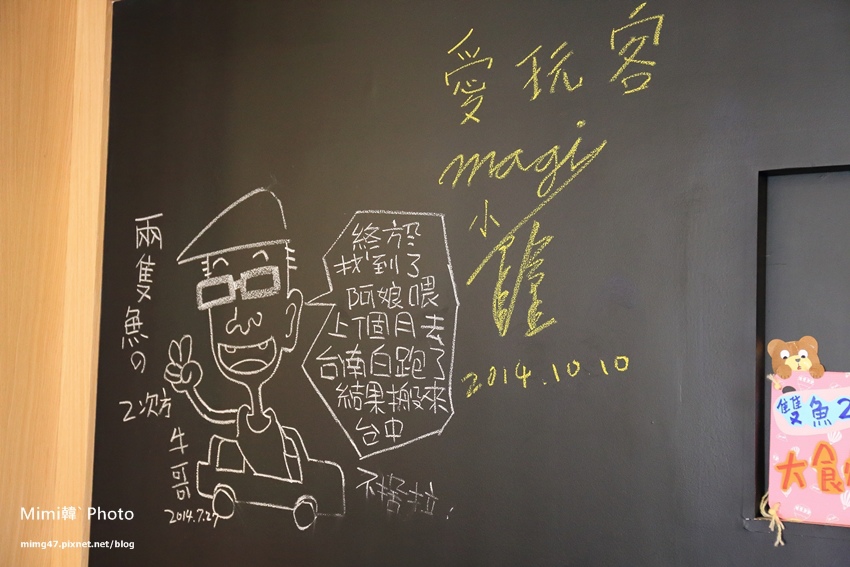 愛玩客
magi
小鐘
2014.10.10
兩隻魚の
2次方
牛哥
2014.7.27
終於
找到了
阿娘喂
上個月去
台南白跑了
結果搬來
台中
雙魚2
大食
Mimi韓` Photo
mimg47.pixnet.net/blog